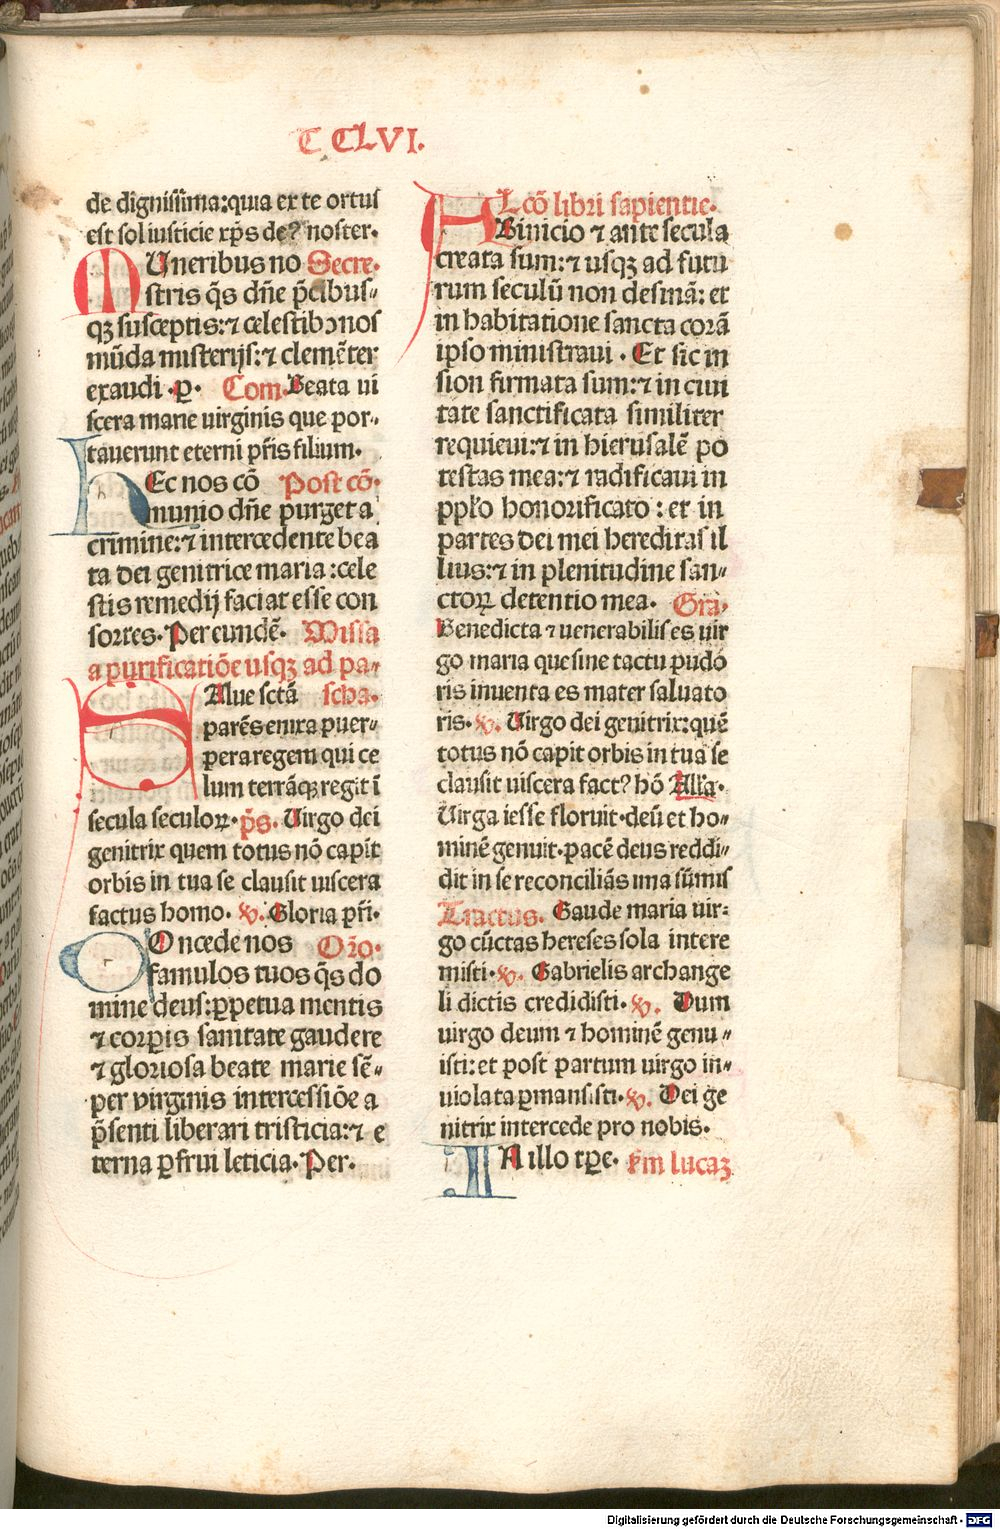 C CLVI.
de dignissima: quia ex te ortus
est sol iusticie xp̄s de? noster.
MUneribus no Secre.
stris q̄s dn̄e p̄cibus⸗
qꝫ susceptis: ⁊ celestibꝰ nos
mūda misterijs: ⁊ clemēter
exaudi .ꝑ. Com. Beata ui
scera marie uirginis que por⸗
tauerunt eterni p̄ris filium.
HEc nos cō Post cō.
munio dn̄e purget a
crimine: ⁊ intercedente bea
ta dei genitrice maria: cele
stis remedij faciat esse con
sortes. Per eundē. Missa
a purificatiōe usqꝫ ad pa⸗
SAlue sctā scha.
parēs enixa puer⸗
pera regem qui ce
lum terrāqꝫ regit ī
secula seculoꝝ. p̄s. Uirgo dei
genitrix quem totus nō capit
orbis in tua se clausit uiscera
factus homo. ℣. Gloria p̄ri.
COncede nos Orō.
famulos tuos q̄s do
mine deus: ꝑpetua mentis
⁊ corꝑis sanitate gaudere
⁊ gloriosa beate marie sē⸗
per virginis intercessiōe a
p̄senti liberari tristicia: ⁊ e
terna ꝑfrui leticia. Per.
Lcō libri sapientie.
ABinicio ⁊ ante secula
creata sum: ⁊ usqꝫ ad futu
rum seculū non desinā: et
in habitatione sancta corā
ipso ministraui. Et sic in
sion firmata sum: ⁊ in ciui
tate sanctificata similiter
requieui: ⁊ in hierusalē po
testas mea: ⁊ radificaui in
pplo honorificato: et in
partes dei mei hereditas il
lius: ⁊ in plenitudine san⸗
ctoꝝ detentio mea. Gra.
Benedicta ⁊ uenerabilis es uir
go maria que sine tactu pudo
ris inuenta es mater saluato
ris. ℣. Uirgo dei genitrix: quē
totus nō capit orbis in tua se
clausit uiscera fact? hō Allā.
Uirga iesse floruit. deū et ho⸗
minē genuit. pacē deus reddi⸗
dit in se reconciliās ima sūmis
Tractus. Gaude maria uir⸗
go cūctas hereses sola intere
misti. ℣. Gabrielis archange
li dictis credidisti. ℣. Dum
uirgo deum ⁊ hominē genu⸗
isti: et post partum uirgo in⸗
uiolata ꝑmansisti. ℣. Dei ge
nitrix intercede pro nobis.
IN illo tꝑe. Fm lucaꝫ
Digitalisierung gefördert durch die Deutsche Forschungsgemeinschaft - DFG